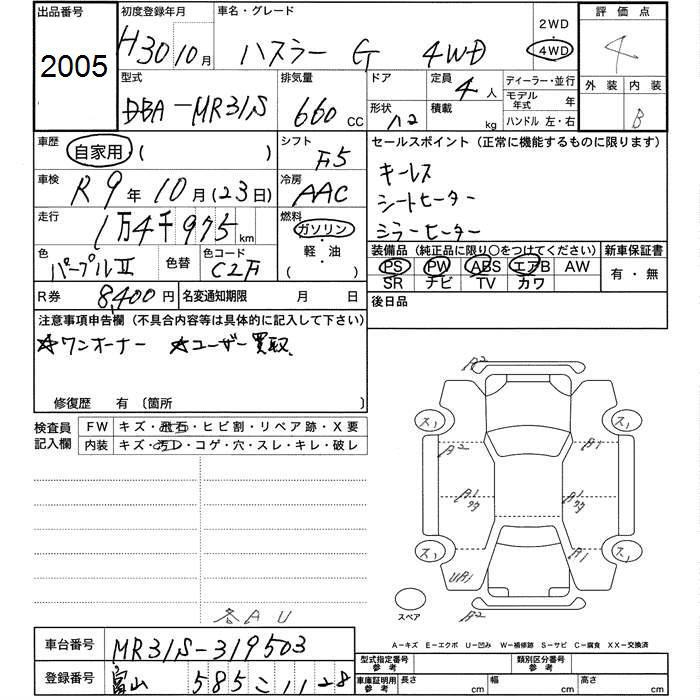 出品番号
2005
初度登録年月
H30 10月
車名・グレード
ハスラー G 4WD
2WD
4WD
評価点
4
外装 内装
B
型式
DBA-MR31S
排気量
660 CC
ドア
形状 ハ2
定員
4人
積載
kg
ディーラー・並行
モデル年式 年
ハンドル 左・右
車歴
自家用 ( )
シフト
F5
セールスポイント (正常に機能するものに限ります)
キーレス
シートヒーター
ミラーヒーター
車検
R9年10月(23日)
冷房
AAC
走行
1万4千975km
燃料
ガソリン
軽・油
( )
色
パープルⅡ
色替
色コード
装備品 (純正品に限り○をつけてください)
PS PW ABS エアB AW
SR ナビ TV カワ
新車保証書
有・無
R券 8,400円
名変通知期限 月 日
後日品
注意事項申告欄 (不具合内容等は具体的に記入して下さい)
☆ワンオーナー ☆ユーザー買取
修復歴 有 〔箇所 〕
検査員記入欄
FW キズ・飛石・ヒビ割・リペア跡・X要
内装 キズ・汚れ・コゲ・穴・スレ・キレ・破レ
A2
ス1 ス1
A2 A1
A1 A1
ス1 ス1
A1
UA1
A2
スペア
各AU
A-キズ E-エクボ U-凹み W-補修跡 S-サビ C-腐食 XX-交換済
車台番号 MR31S-319503
登録番号 富山 585 こ 1128
型式指定番号 参考
類別区分番号 参考
車庫証明用 参考
長さ cm 幅 cm 高さ cm